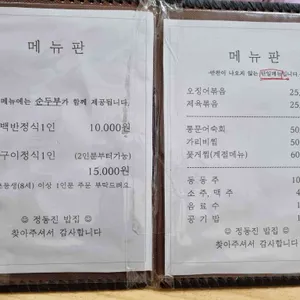 메 뉴 판
메뉴에는 순두부가 함께 제공됩니다.
백반정식1인 10.000원
구이정식1인 (2인분부터가능)
15.000원
(8세) 이상 1인분 주문 부탁드려요.
☺ 정동진 밥집 ☺
찾아주셔서 감사합니다
메 뉴 판
-반찬이 나오지 않는 단일메뉴입니다
오징어볶음 25,
제육볶음 25,
통문어숙회
가리비찜 50
꽃게찜(계절메뉴) 60
동 동 주 10
소 주, 맥 주
음 료 수
공 기 밥
☺ 정동진 밥집 ☺
찾아주셔서 감사합니다